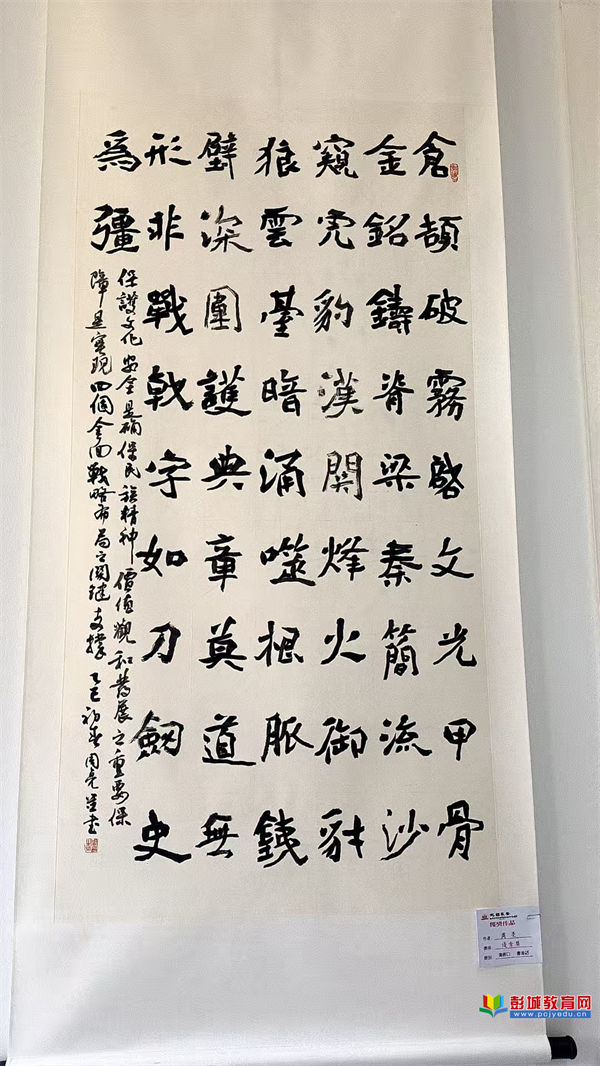 倉頡破霧啓文光甲骨
金銘鑄脊梁秦簡流沙
窺虎豹漢關烽火御豺
狼雲臺暗涌噬根脈鐵
壁深圍護典章莫道無
形非戰戟字如刀劍史
爲彊
保護文化安全是確保民族精神價值觀和發展之重要保
障是實現四個全面戰略布局之關鍵支撑 乙巳初春周亮書
作品
彭城教育网
www.pcjyedu.cn